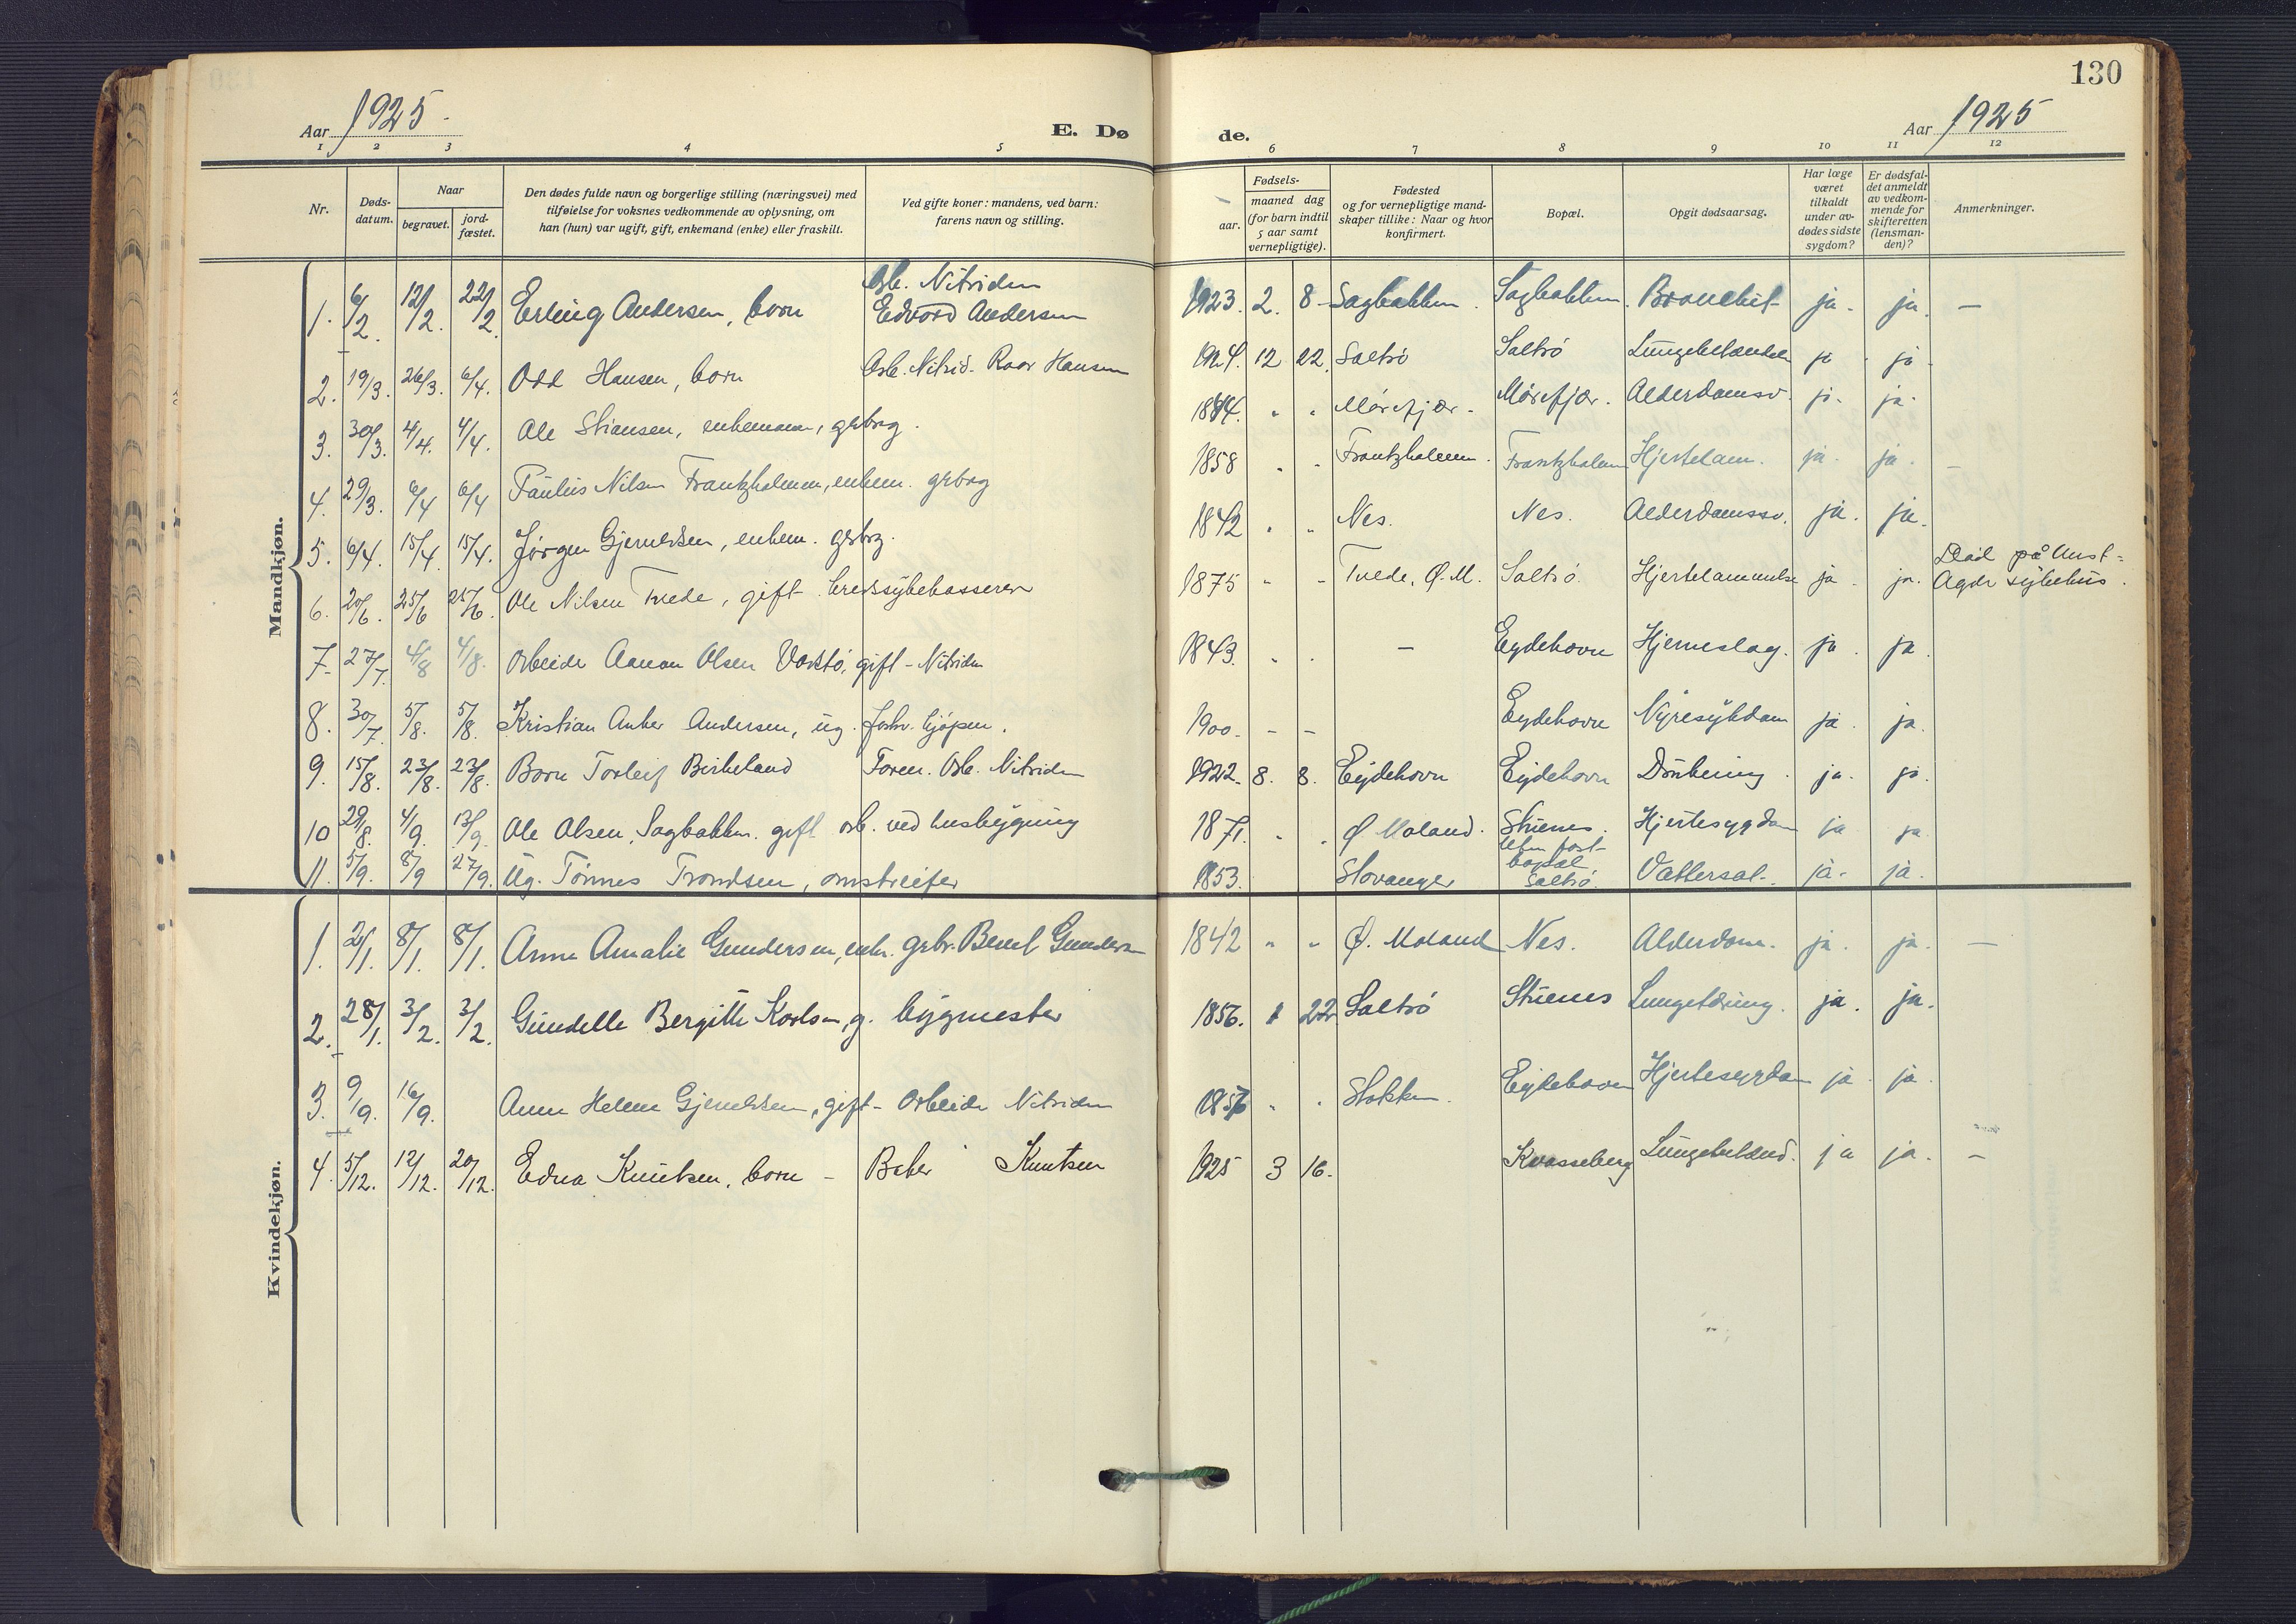 130
Aar 1925
E. Dø de.
Aar 1925
1 2 3 4 5 6 7 8 9 10 11 12
Nr.
Døds-
datum.
Naar
begravet.
jord-
fæstet.
Den dødes fulde navn og borgerlige stilling (næringsvei) med
tilføielse for voksnes vedkommende av oplysning, om
han (hun) var ugift, gift, enkemand (enke) eller fraskilt.
Ved gifte koner: mandens, ved barn:
farens navn og stilling.
Fødsels-
aar.
maaned dag
(for barn indtil
5 aar samt
vernepligtige).
Fødested
og for vernepligtige mand-
skaper tillike: Naar og hvor
konfirmert.
Bopæl.
Opgit dødsaarsag.
Har læge
været
tilkaldt
under av-
dødes sidste
sygdom?
Er dødsfal-
det anmeldt
av vedkom-
mende for
skifteretten
(lensman-
den)?
Anmerkninger.
Mandkjøn.
1. 6/2. 12/2. 22/2. Erling Andersen, barn Arb. Nitriden Edvard Andersen 1923. 2. 8 Sagbakken. Sagbakken. Bronchit ja. ja. —
2. 19/3. 26/3. 6/4. Odd Hansen, barn Arb. Nitrid. Roar Hansen 1924. 12 22. Saltrö Saltrö ja ja.
3. 30/3. 4/4. 4/4. Ole Stiansen, enkemann, grbrg. Mörefjær. Mörefjær. Alderdomssv. ja. ja.
4. 29/3. 6/4 6/4 Paulus Nilsen Frantzholmen, enkem. grbrg 1858 Frantzholmen. Frantzholmen Hjertelam. ja. ja. —
5. 6/4. 15/4. 15/4. Jörgen Gjeruldsen, enkem. grbrg. 1842 Nes. Nes. Alderdomssv. ja. ja.
6. 20/6. 25/6 25/6. Ole Nilsen Tvede, gift kredssykekasserer 1875 Tvede, Ø.M. Saltrö Hjertelammelse ja. ja. Död på Aust-
Agder sykehus.
7. 27/7. 4/8 4/8. Arbeider Aanon Olsen gift - Nitriden 1843. — Eydehavn Hjerneslag. ja. ja.
8. 30/7. 5/8. 5/8. Kristian Anker Andersen, ug. 1900. — — Eydehavn Nyresykdom ja. ja.
9. 15/8. 23/8. 23/8. Barn Torleif Birkeland Faren. Arb. Nitriden 1922. 8. 8. Eydehavn Eydehavn Drukning. ja. ja.
10 29/8. 4/9. 13/9. Ole Olsen, Sagbakken. gift arb. ved husbygning 1871. Ø. Moland. Stuenes. Hjertesygdom ja ja
11. 5/9. 8/9 27/9. Ug. Tönnes Trondsen, omstreifer 1853. Stavanger uten fast
bopæl
Saltrö. Vattersot. ja. ja.
Kvindekjøn.
1. 2/1. 8/1. 8/1. Anne Amalie Gundersen, enke. grbr. Berent Gundersen 1842 Ø. Moland Nes. Alderdom. ja. ja. —
2. 28/1. 3/2. 3/2. Gundelle Bergitte Karlsen, g. bygmester 1856. 22. Saltrö Stuenes Lungetæring. ja. ja.
3. 9/9. 16/9. Anne Helene Gjeruldsen, gift - Arbeider Nitriden Stokken. Eydehavn Hjertesygdom ja ja.
4. 5/12. 12/12. 20/12. Edna Knutsen, barn - Baker Knutsen 1925 3 16. Kvasseberg Lungebetænd. ja ja. —